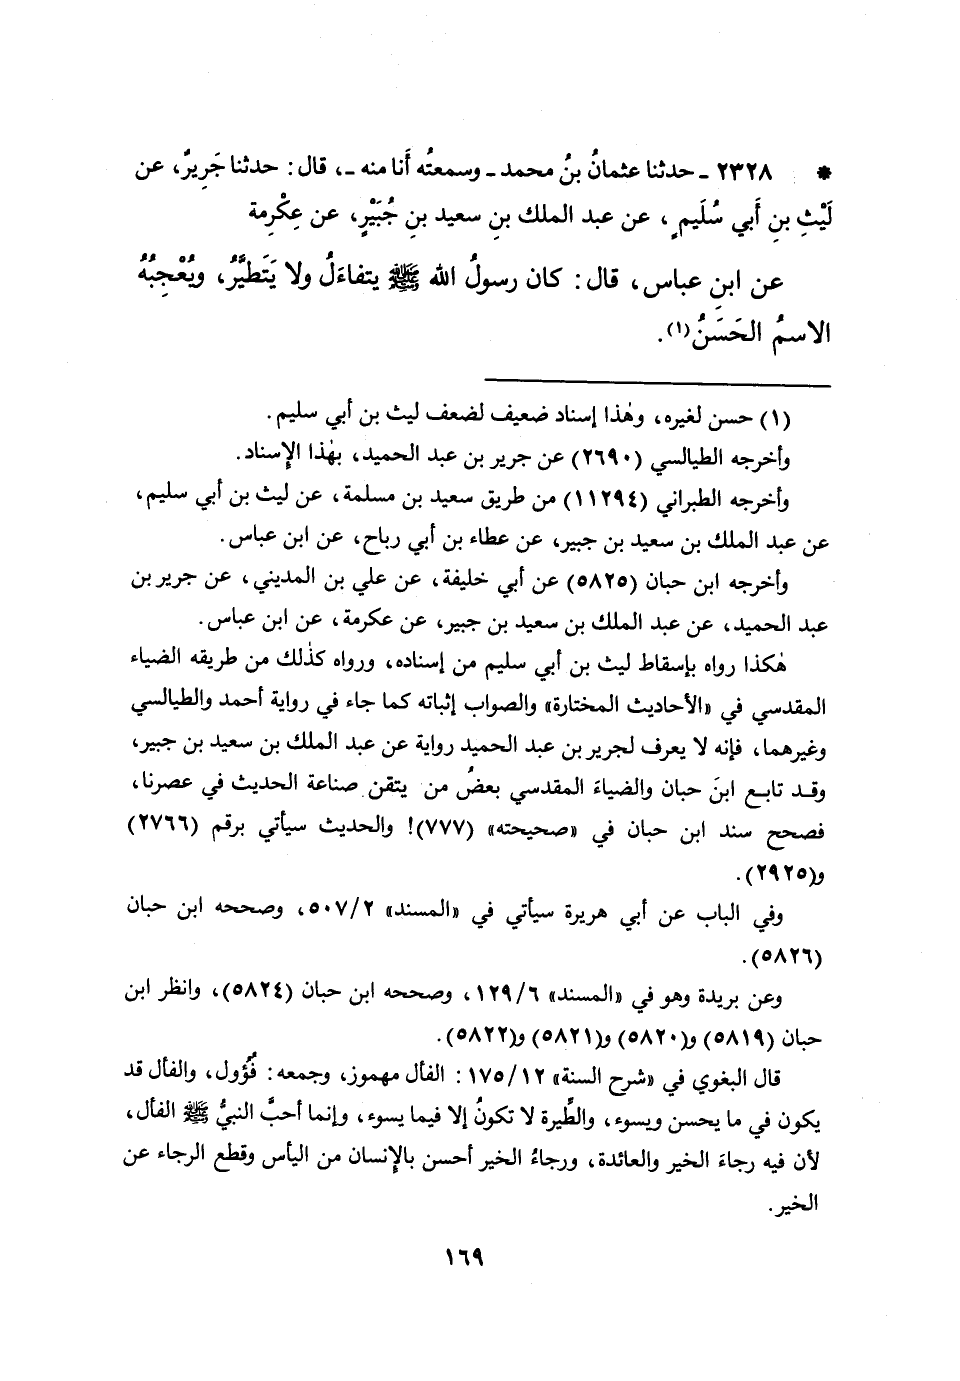 * ٢٣٢٨ ـ حدثنا عثمانُ بنُ محمد ـ وسمعتُه أَنا منه ـ، قال: حدثنا جَرِيرٌ، عن
لَيْثِ بنِ أَبي سُلَيمٍ، عن عبد الملك بنِ سعيد بنِ جُبَيْرٍ، عن عِكْرِمة
عن ابنِ عباس، قال: كان رسولُ الله ﷺ يتفاءَلُ ولا يَتَطيَّرُ، ويُعْجِبُهُ
الاسمُ الحَسَنُ(١).
(١) حسن لغيره، وهٰذا إسناد ضعيف لضعف ليث بن أبي سليم.
وأخرجه الطيالسي (٢٦٩٠) عن جرير بن عبد الحميد، بهٰذا الإسناد.
وأخرجه الطبراني (١١٢٩٤) من طريق سعيد بن مسلمة، عن ليث بن أبي سليم،
عن عبد الملك بن سعيد بن جبير، عن عطاء بن أبي رباح، عن ابن عباس.
وأخرجه ابن حبان (٥٨٢٥) عن أبي خليفة، عن علي بن المديني، عن جرير بن
عبد الحميد، عن عبد الملك بن سعيد بن جبير، عن عكرمة، عن ابن عباس.
هٰكذا رواه بإسقاط ليث بن أبي سليم من إسناده، ورواه كذٰلك من طريقه الضياء
المقدسي في «الأحاديث المختارة» والصواب إثباته كما جاء في رواية أحمد والطيالسي
وغيرهما، فإنه لا يعرف لجرير بن عبد الحميد رواية عن عبد الملك بن سعيد بن جبير،
وقد تابع ابنَ حبان والضياءَ المقدسي بعضُ من يتقن صناعة الحديث في عصرنا،
فصحح سند ابن حبان في «صحيحته» (٧٧٧)! والحديث سيأتي برقم (٢٧٦٦)
و(٢٩٢٥).
وفي الباب عن أبي هريرة سيأتي في «المسند» ٥٠٧/٢، وصححه ابن حبان
(٥٨٢٦).
وعن بريدة وهو في «المسند» ١٢٩/٦، وصححه ابن حبان (٥٨٢٤)، وانظر ابن
حبان (٥٨١٩) و(٥٨٢٠) و(٥٨٢١) و(٥٨٢٢).
قال البغوي في «شرح السنة» ١٧٥/١٢: الفأل مهموز، وجمعه: فُؤُول، والفأل قد
يكون في ما يحسن ويسوء، والطِّيرة لا تكونُ إلا فيما يسوء، وإنما أحبَّ النبيُّ ﷺ الفأل،
لأن فيه رجاءَ الخير والعائدة، ورجاءُ الخير أحسن بالإنسان من اليأس وقطع الرجاء عن
الخير.
١٦٩